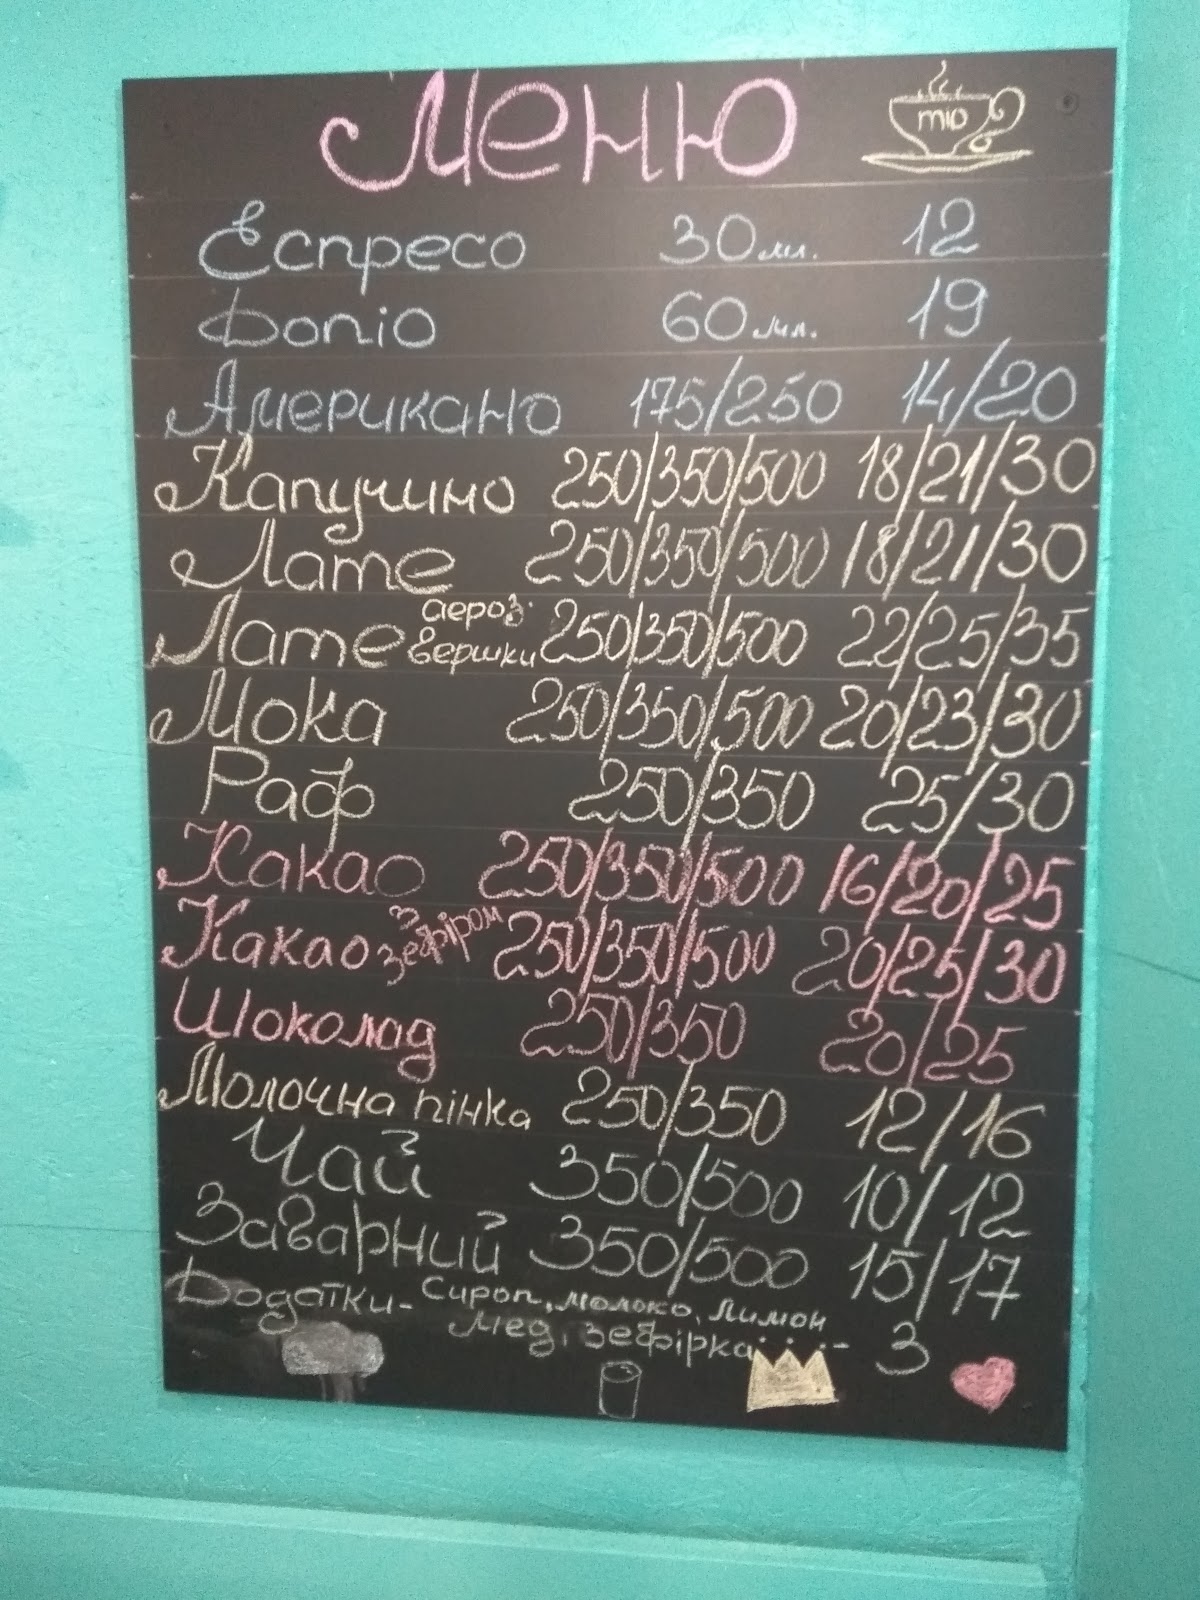 Меню
mio
Еспресо 30мл. 12
Допіо 60мл. 19
Американо 175/250 14/20
Капучино 250/350/500 18/21/30
Лате 250/350/500 18/21/30
Лате аероз. вершки 250/350/500 22/25/35
Мока 250/350/500 20/23/30
Раф 250/350 25/30
Какао 250/350/500 16/20/25
Какао з зефіром 250/350/500 20/25/30
Шоколад 250/350 20/25
Молочна пінка 250/350 12/16
Чай 350/500 10/12
Заварний 350/500 15/17
Додатки - Сироп, молоко, лимон
мед, зефірка...- 3